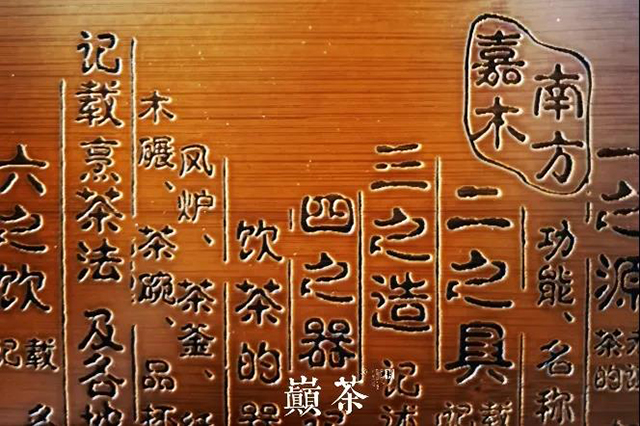 南方
嘉木
一之源
茶的
功能、名称
二之具
记载
三之造
记述
四之器
饮茶的器
风炉、茶釜、
木碾、茶碗、品
记载烹茶法 及各地
六之饮
记载
巅茶